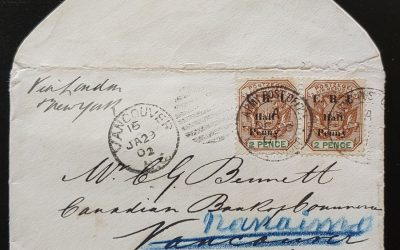 Via London
& New York
VANCOUVER
15
JA 29
02
POSTZEGEL
POSTZEGEL
E. R. I.
Half
Penny
E. R. I.
Half
Penny
2 PENCE
2 PENCE
Mr E G Bennett
Canadian Bank of Commerce
Nanaimo
Vancouver